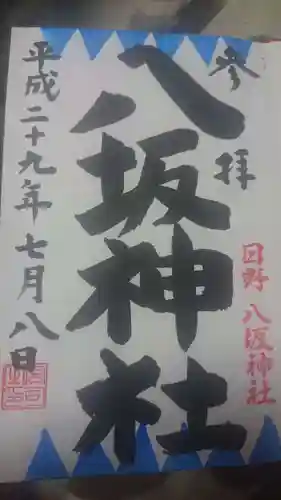 参拝
八坂神社
日野 八坂神社
平成二十九年七月八日